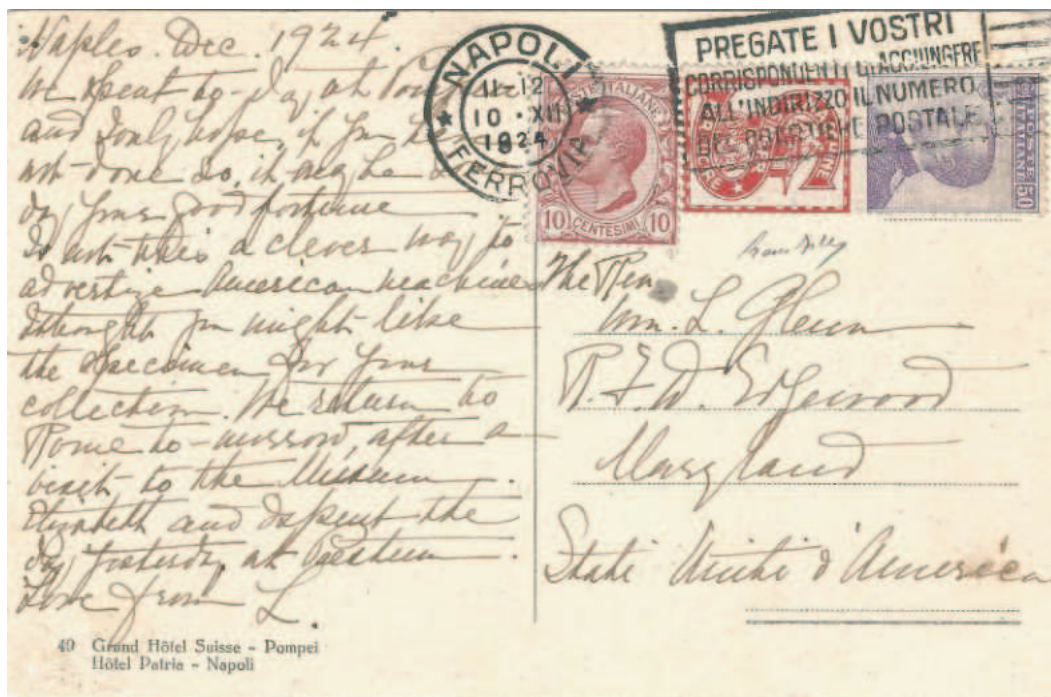 Naples. Dec. 1924.
We spent to-day at
and I only hope, if you
not done so, it may be
day your good fortune
Is not this a clever way to
advertize American machines
I thought you might like
the specimen for your
collection. We return to
Rome to-morrow, after a
visit to the Museum.
Elizabeth and I spent the
day yesterday at Paestum.
Love from L.
49 Grand Hôtel Suisse - Pompei
Hôtel Patria - Napoli
NAPOLI
11-12
10 · XII
1924
FERROVIA
PREGATE I VOSTRI
CORRISPONDENTI DI AGGIUNGERE
ALL'INDIRIZZO IL NUMERO
POSTALE
POSTE ITALIANE
10 CENTESIMI 10
SINGER
POSTE ITALIANE 50
The Rev.
Wm. L. Glenn
R.F.D. Edgewood
Maryland
Stati Uniti d'America